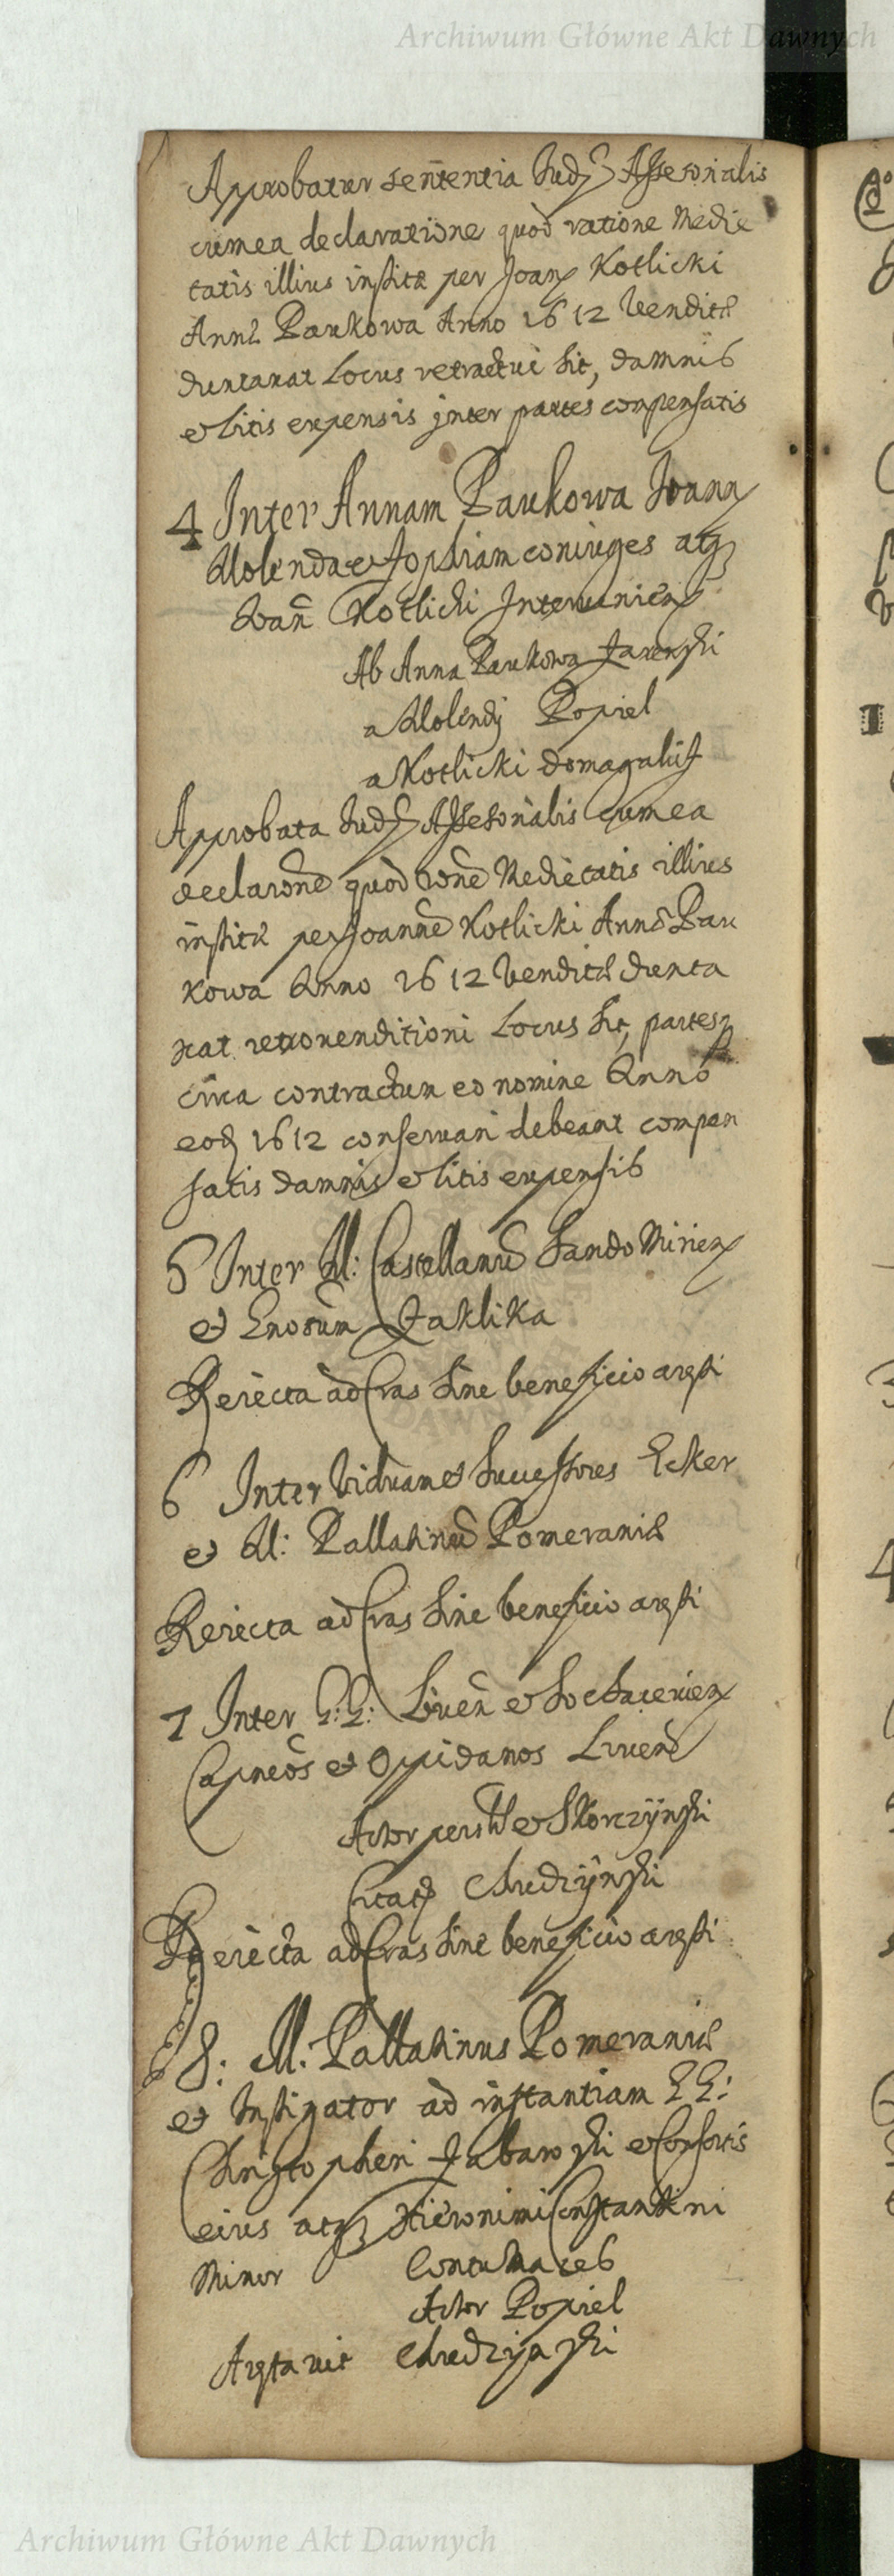 Archiwum Główne Akt Dawnych
Approbatur sententia Jud. Assessorialis
cum ea declaratione quod ratione Medie
tatis illius instita per Joan Kotlicki
Annæ Paukowa Anno 1612 Vendita
duntaxat Locus retractui sit, damnis
et litis expensis inter partes compensatis
4 Inter Annam Paukowa Joann
Molenda et Sophiam coniuges atq
Joan Kotlicki Intervenien
Ab Anna Paukowa
a Molendy Popiel
a Kotlicki Domagalis
Approbata Jud Assessorialis cum ea
declarone quod rone Medietatis illius
institæ per Joanne Kotlicki Annæ Pau
kowa Anno 1612 Vendita dunta
xat retrovenditioni Locus sit, partesq
circa contractum eo nomine Anno
eod 1612 conservari debeant compen
satis damnis et litis expensis
5 Inter M: Castellanu Sandomirien
et Gnosum Taklika
Reiecta ad Cras sine beneficio aresti
6 Inter Successores Ecker
et M: Pallatinu Pomeraniæ
Reiecta ad Cras sine beneficio aresti
7 Inter G:G: Liven et Sochacevien
Capneos et Oppidanos Livens
Actor et Skorczynski
Citat Chudzynski
Reiecta ad Cras sine beneficio aresti
8: M: Pallatinus Pomeraniæ
et Instigator ad instantiam GG:
Christopheri Zabawski et Consortis
eius atq Hieronimi Constantini
Minor Contumaces
Actor Popiel
Arestavit Chudzynski
Archiwum Główne Akt Dawnych